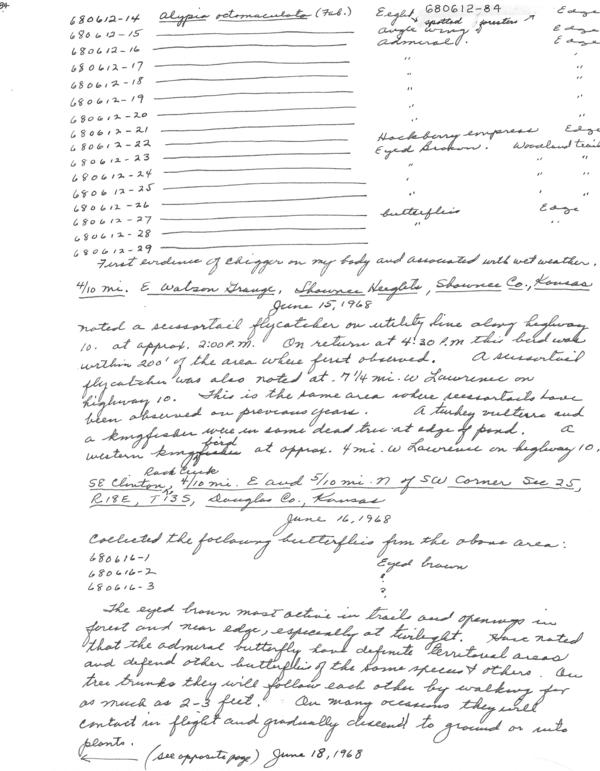 84
680612-14 Alypia octomaculata (Fab.) Eight 680612-84 Edge
spotted forester
680612-15 angle wing Edge
680612-16 admiral. Edge
680612-17 " "
680612-18 " "
680612-19 " "
680612-20 " "
680612-21 Hackberry empress Edge
680612-22 Eyed Brown. Woodland trail
680612-23 " "
680612-24 " "
680612-25 " "
680612-26 butterflies Edge
680612-27 " "
680612-28
680612-29
First evidence of chigger on my body and associated with wet weather.
4/10 mi. E Watson Grange, Shawnee Heights, Shawnee Co., Kansas
June 15, 1968
noted a scissortail flycatcher on utility line along highway
10. at approx. 2:00 P.M. On return at 4:30 P.M this bird was
within 200' of the area where first observed. A scissortail
flycatcher was also noted at 7 1/4 mi. W Lawrence on
highway 10. This is the same area where scissortails have
been observed on previous years. A turkey vulture and
a kingfisher were in some dead tree at edge of pond. A
western kingbird at approx. 4 mi. W Lawrence on highway 10.
Rock Creek
SE Clinton, 4/10 mi. E and 5/10 mi. N of SW Corner Sec 25,
R18E, T13S, Douglas Co., Kansas
June 16, 1968
Collected the following butterflies from the above area:
680616-1 Eyed brown
680616-2 "
680616-3 ?
The eyed brown most active in trails and openings in
forest and near edge, especially at twilight. Have noted
that the admiral butterfly have definite territorial areas
and defend other butterflies of the same species & others. On
tree trunks they will follow each other by walking for
as much as 2-3 feet. On many occasions they will
contact in flight and gradually descend to ground or into
plants.
(see opposite page) June 18, 1968